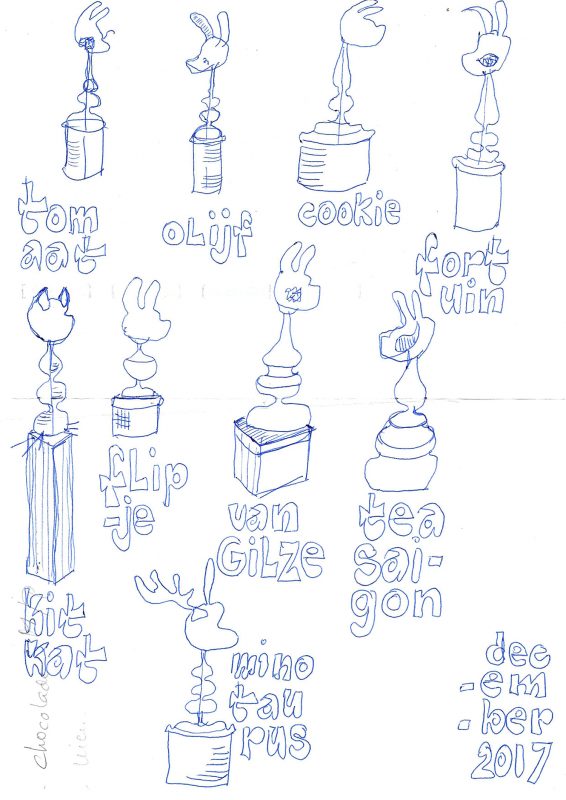 tom
aat
oLijf
cookie
fort
uin
fLip
-je
van
GiLZE
tea
sai-
gon
kit
kat
mino
tau
rus
dec
-em
-ber
2017
chocolade